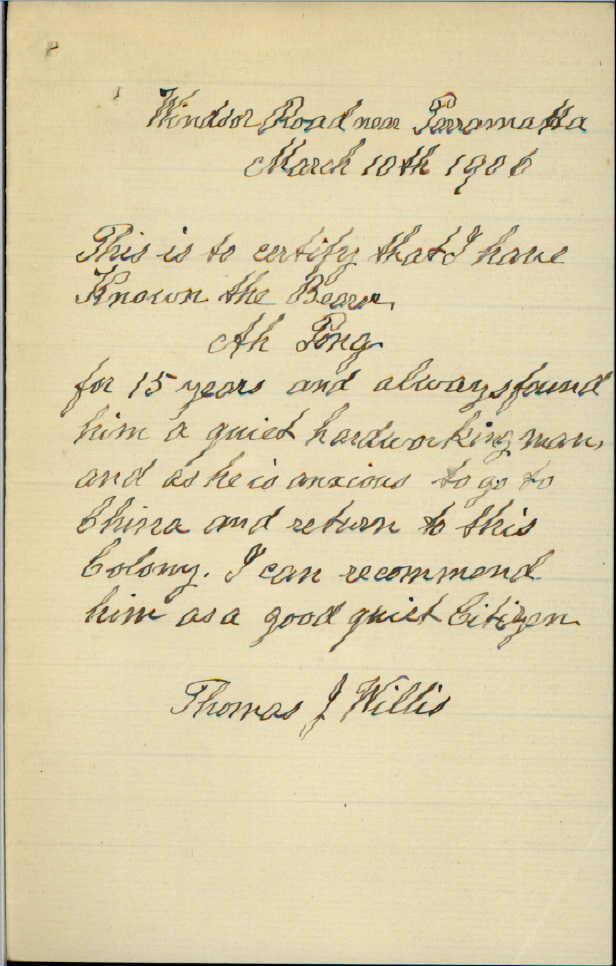 Windsor Road near Parramatta
March 10th 1906
This is to certify that I have
Known the Bearer,
Ah Pong
for 15 years and always found
him a quiet hardworking man,
and as he is anxious to go to
China and return to this
Colony. I can recommend
him as a good quiet Citizen
Thomas J Willis